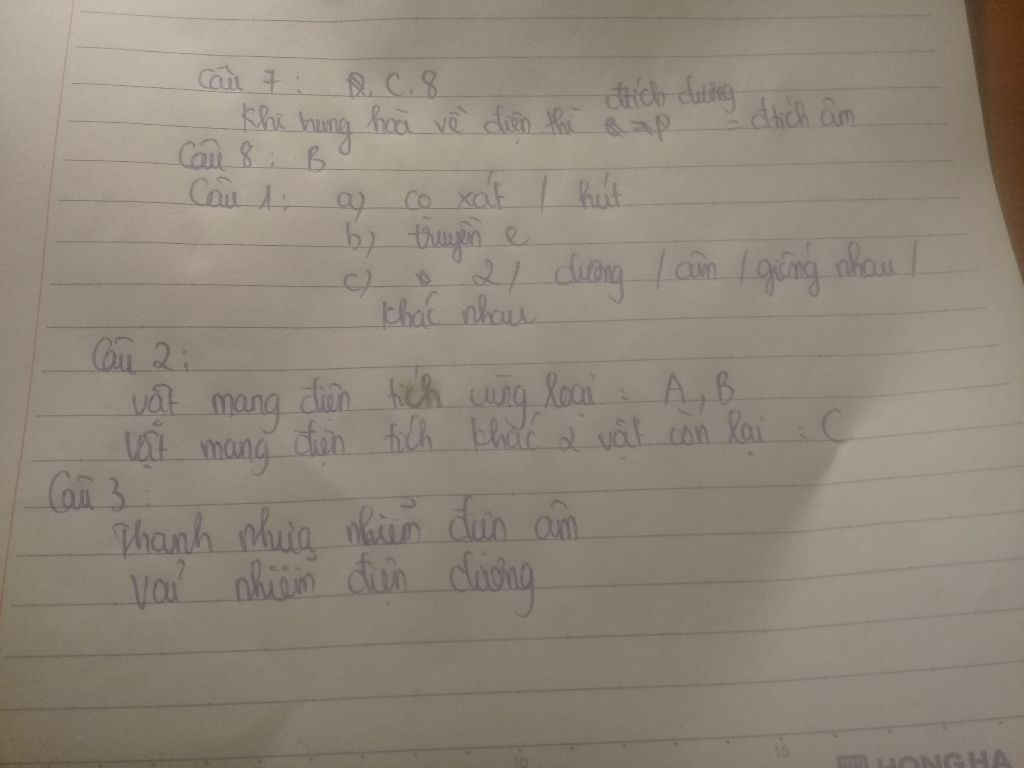 Câu 7: C. 8
đtích dương
Khi trung hoà về điện thì = đtích âm
Câu 8: B
Câu 1: a) cọ xát / hút
b) truyền e
c) 2 / dương / âm / giống nhau /
khác nhau
Câu 2:
vật mang điện tích cùng loại: A, B
vật mang điện tích khác 2 vật còn lại: C
Câu 3:
Thanh nhựa nhiễm điện âm
Vải nhiễm điện dương
10
15
HONG HA